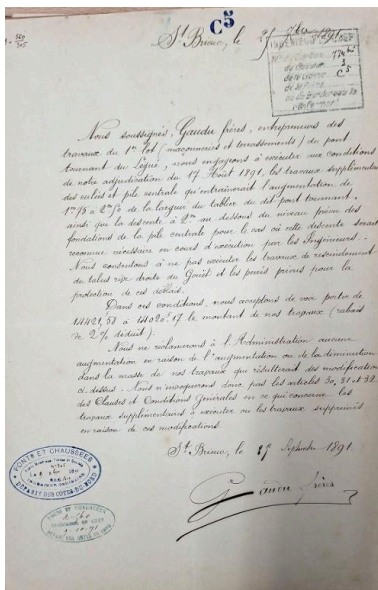 C5
St Brieuc, le 25 7bre 1891
C5
Nous soussignés, Gaudu frères, entrepreneurs des
travaux du 1er lot (maçonneries et terrassements) du pont
tournant du Légué, nous engageons à exécuter aux conditions
de notre adjudication du 17 Août 1891, les travaux supplémentaires
des culées et pile centrale qu'entraînerait l'augmentation de
1m75 à 2m50 de la largeur du tablier du dit pont tournant,
ainsi que la descente à 2m au dessous du niveau prévu des
fondations de la pile centrale pour le cas où cette descente serait
reconnue nécessaire en cours d'exécution par les Ingénieurs.
Nous consentons à ne pas exécuter les travaux de
du talus rive droite du Gouët et les pieux prévus pour la
protection de ces
Dans ces conditions, nous acceptons de voir porter de
14421,58 à 14020.17 le montant de nos travaux (rabais
de 2% déduit).
Nous ne réclamerons à l'Administration aucune
augmentation en raison de l'augmentation ou de la diminution
dans la masse de nos travaux que résulteront des modifications
ci-dessus. Nous n'invoquerons donc pas les articles 30, 31 et 32
des Clauses et Conditions Générales en ce qui concerne les
travaux supplémentaires à exécuter ou les travaux supprimés
en raison de ces modifications.
St Brieuc, le 25 Septembre 1891.
frères
PONTS ET CHAUSSÉES
DÉPART. DES CÔTES-DU-NORD